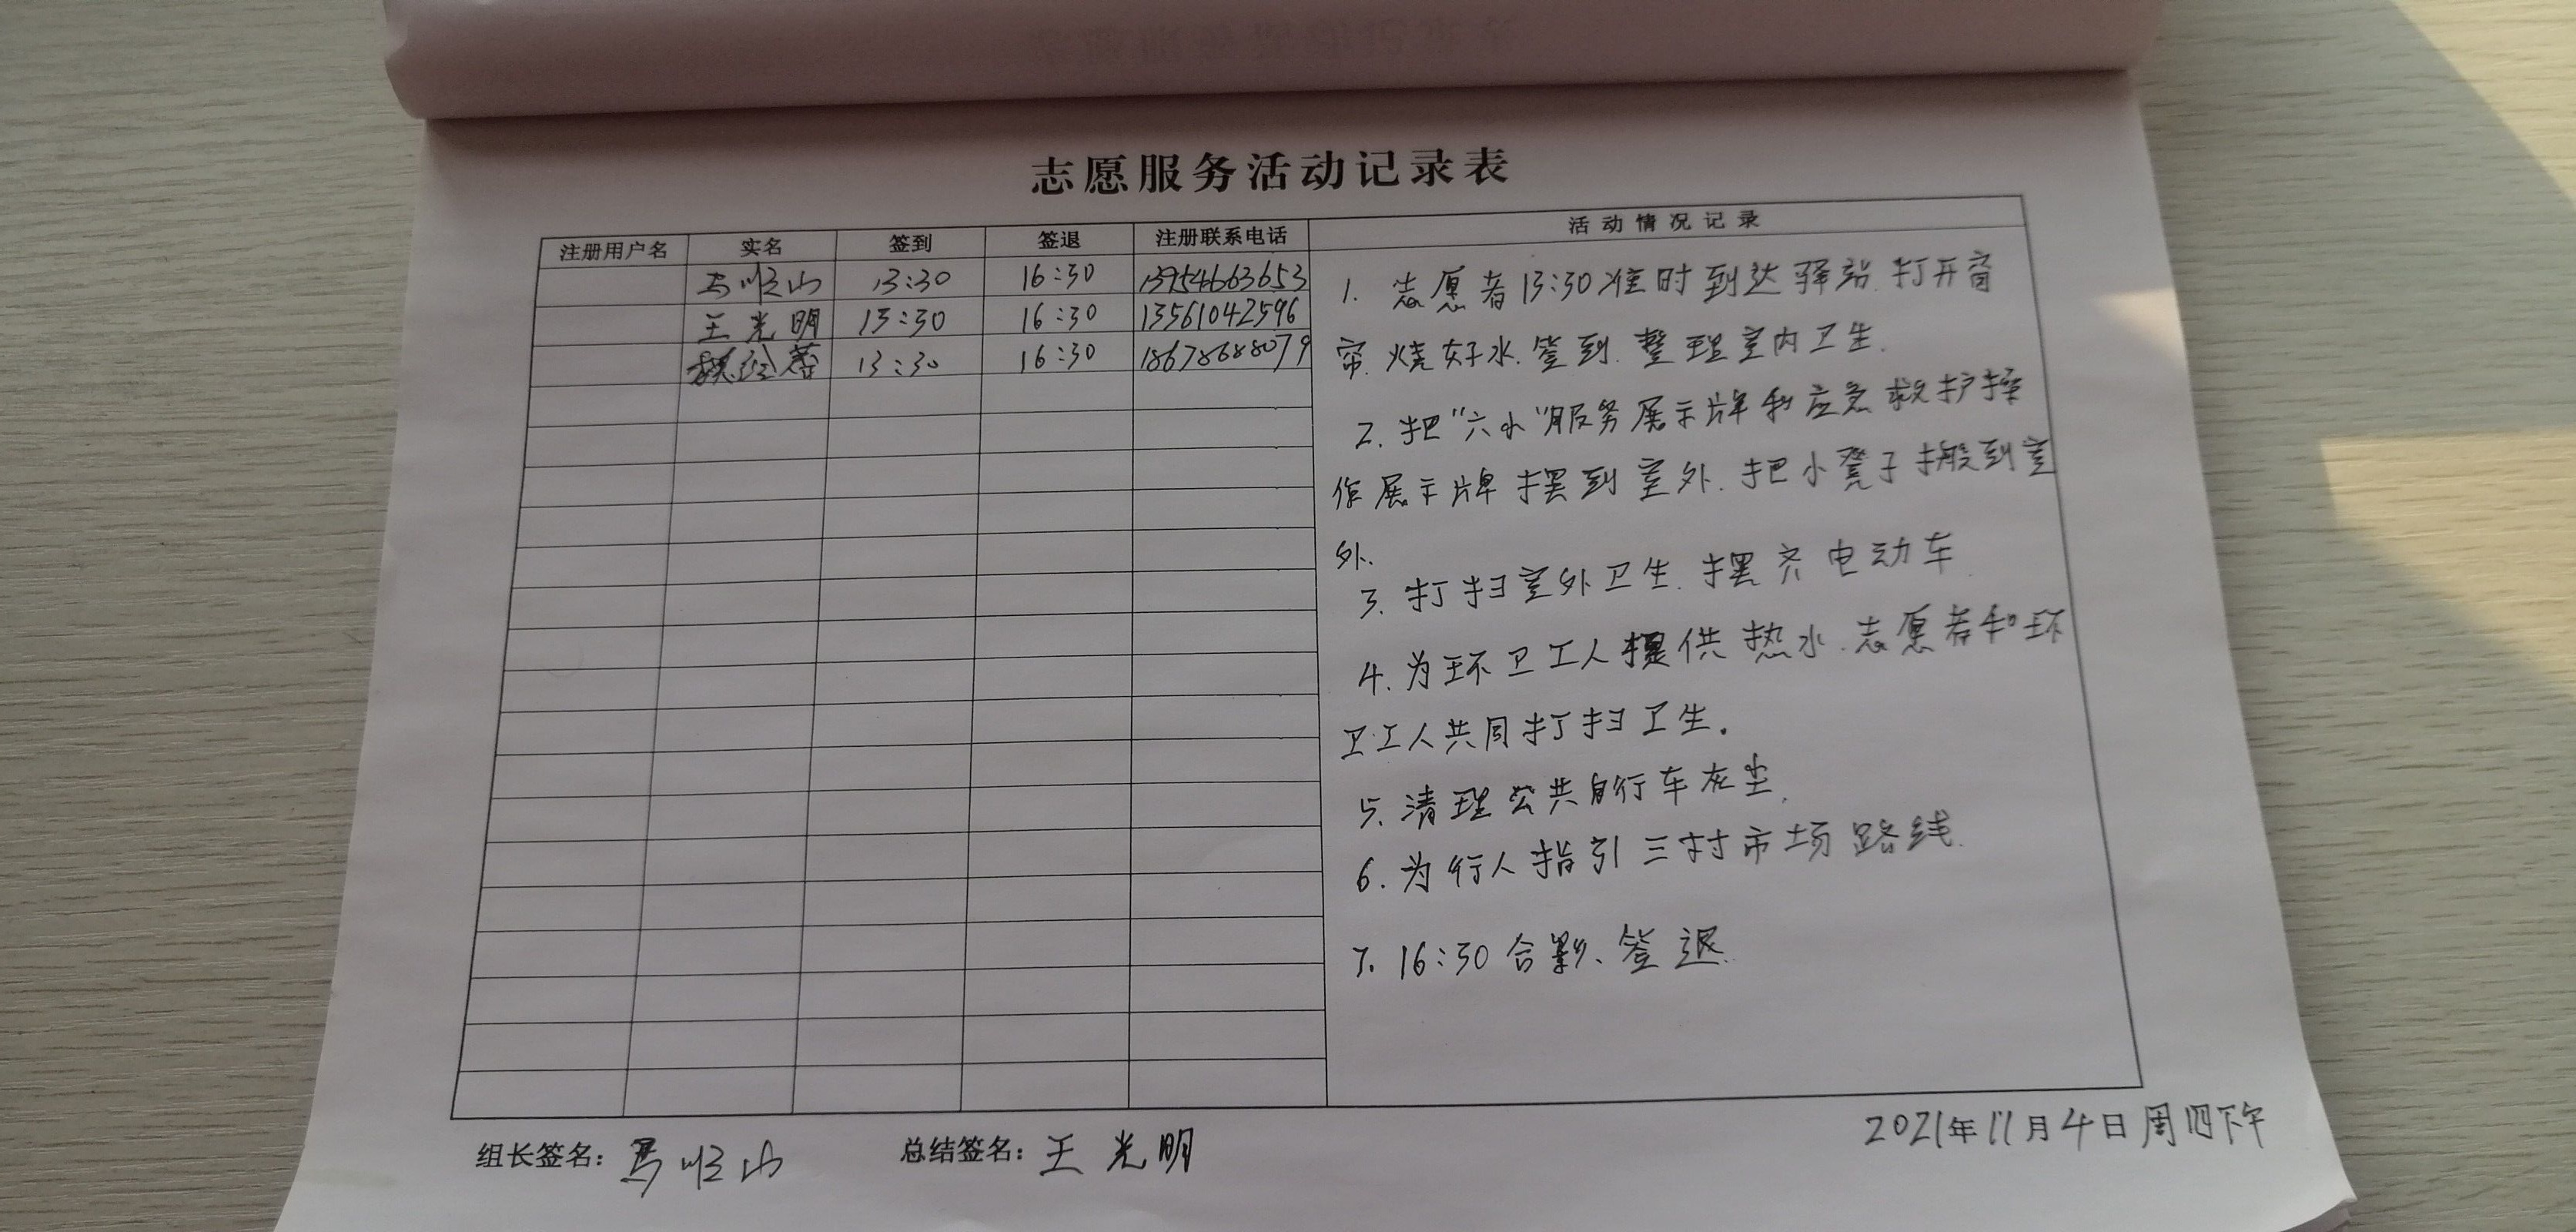 志愿服务活动记录表
注册用户名 实名 签到 签退 注册联系电话 活动情况记录
马顺山 13:30 16:30 13954663653
王光明 13:30 16:30 13561042596
13:30 16:30 18678688079
1. 志愿者13:30准时到达驿站.打开窗
帘.烧好水.签到.整理室内卫生.
2.把“六小”服务展示牌和应急救护操
作展示牌摆到室外.把小凳子搬到室
外.
3.打扫室外卫生.摆齐电动车
4.为环卫工人提供热水.志愿者和环
卫工人共同打扫卫生.
5.清理公共自行车灰尘.
6.为行人指引三村市场路线.
7.16:30合影、签退.
组长签名：马顺山 总结签名：王光明 2021年11月4日周四下午